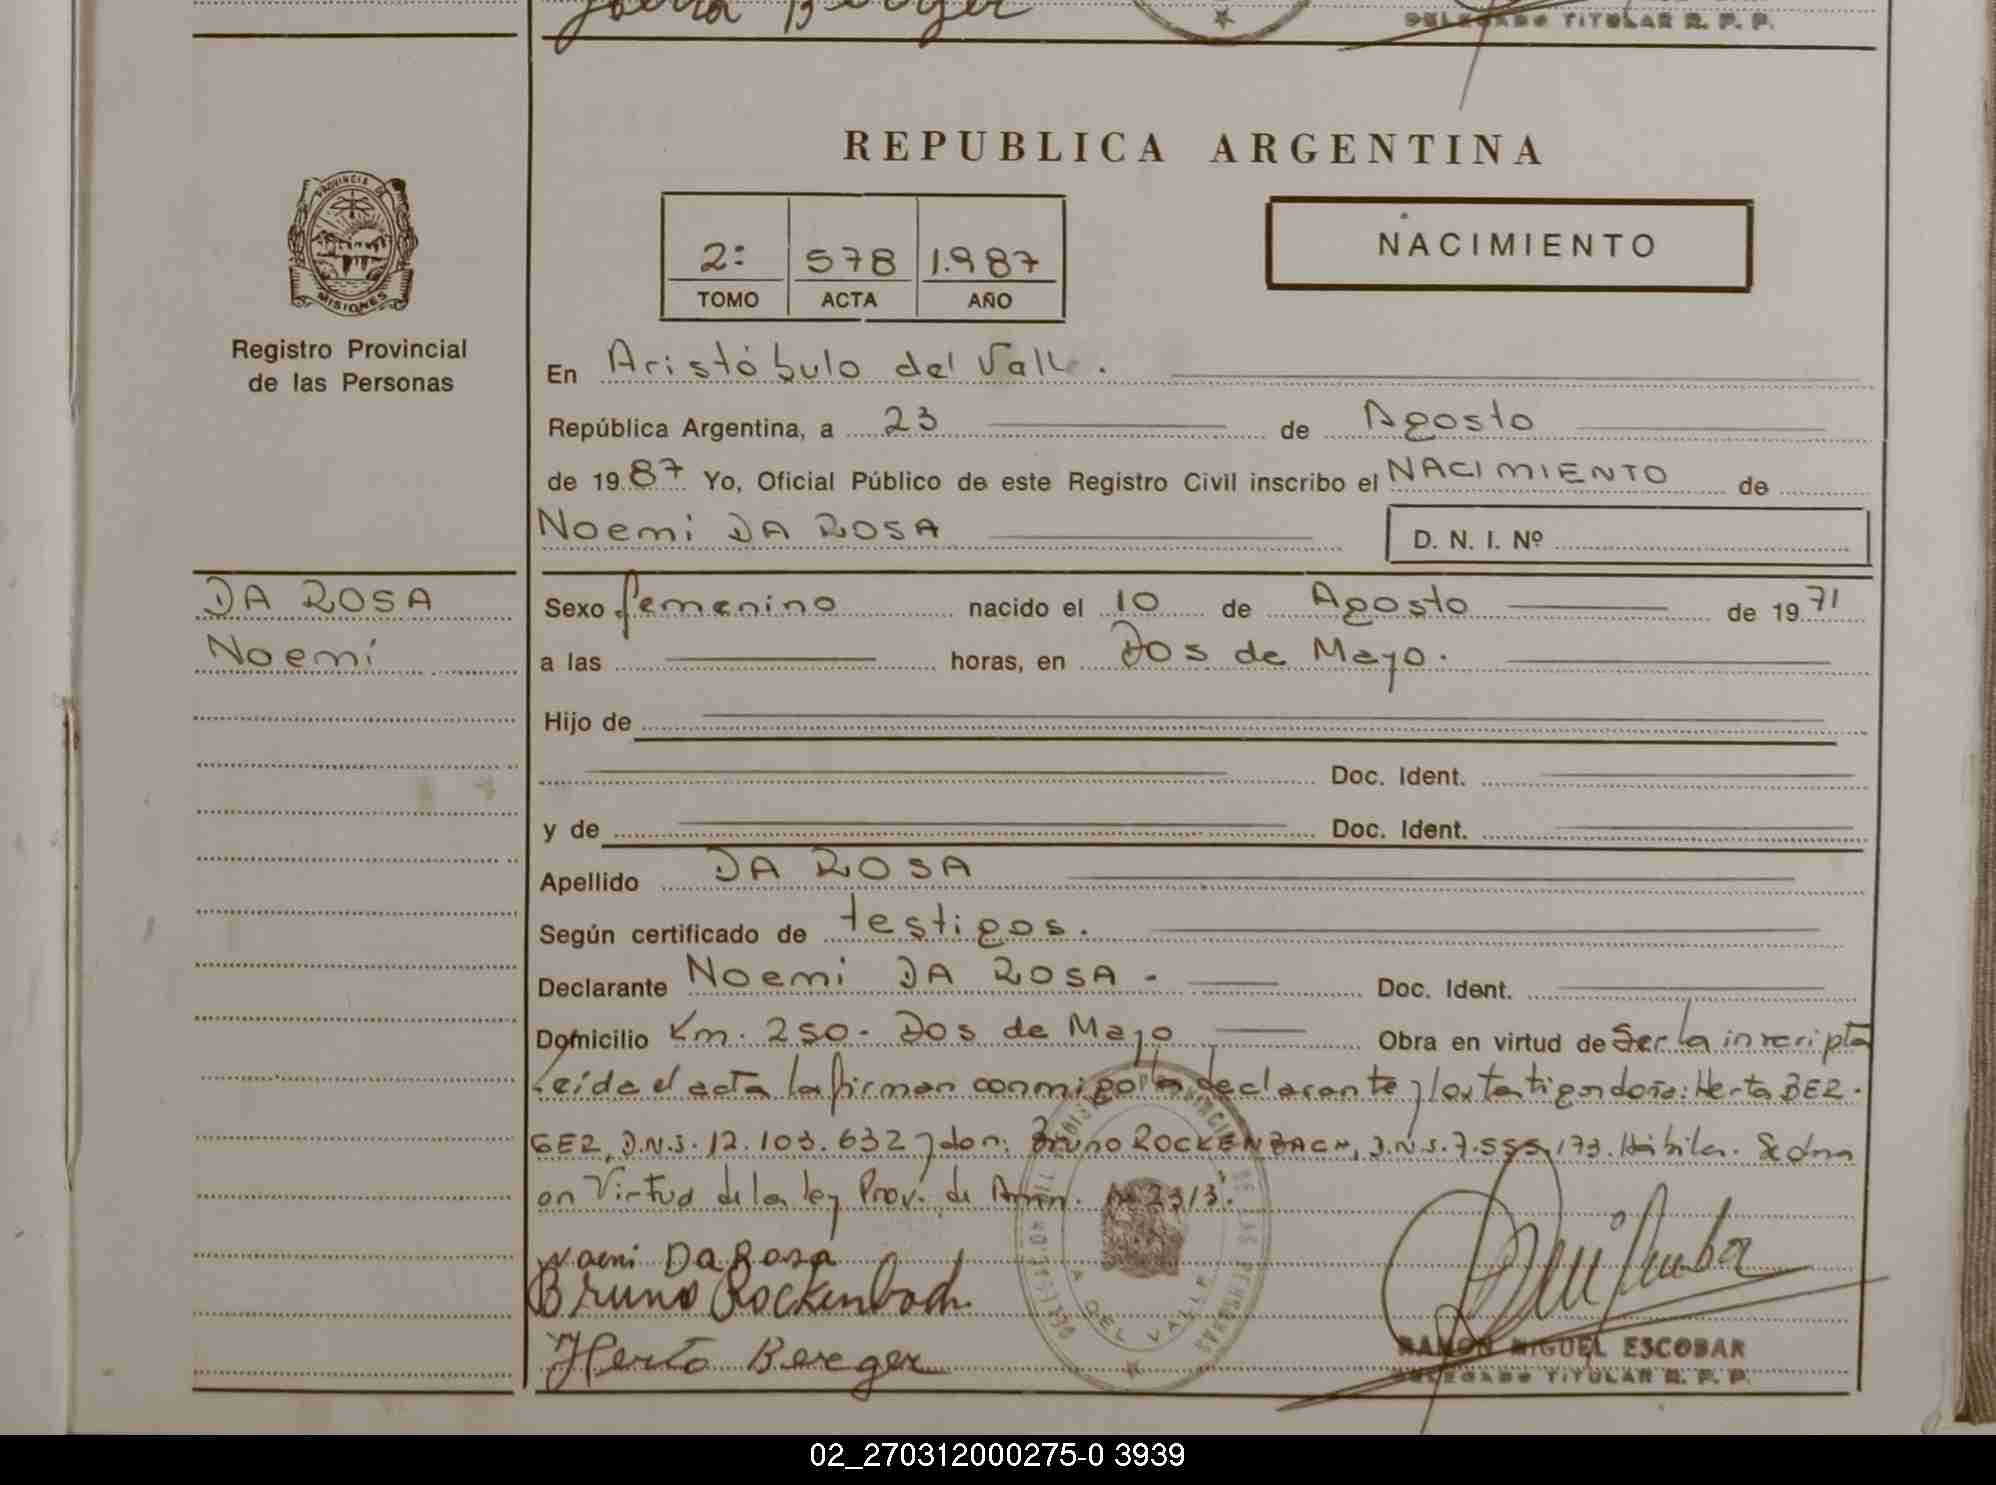 Berger
DELEGADO TITULAR R. P. P.
REPUBLICA ARGENTINA
PROVINCIA DE
MISIONES
Registro Provincial
de las Personas
2: 578 1.987
TOMO ACTA AÑO
NACIMIENTO
En Aristóbulo del Valle.
República Argentina, a 23 de Agosto
de 1987 Yo, Oficial Público de este Registro Civil inscribo el NACIMIENTO de
Noemi DA ROSA D. N. I. Nº
DA ROSA
Noemi
Sexo femenino nacido el 10 de Agosto de 1971
a las horas, en Dos de Mayo.
Hijo de
Doc. Ident.
y de Doc. Ident.
Apellido DA ROSA
Según certificado de testigos.
Declarante Noemi DA ROSA - Doc. Ident.
Domicilio Km. 250- Dos de Mayo Obra en virtud de Ser la inscripta
Leída el acta la firman conmigo la declarante y los testigos doña: Herta BER-
GER, D.N.I. 12.103.632 y don: Bruno ROCKENBACH, D.N.I. 7.555.173. Hábiles.
en Virtud de la ley Prov. de Amn. Nº 2313.
Noemi Da Rosa
Bruno Rockenbach
Herta Berger
DEL VALLE
RAMON MIGUEL ESCOBAR
DELEGADO TITULAR R. P. P.
02_270312000275-0 3939